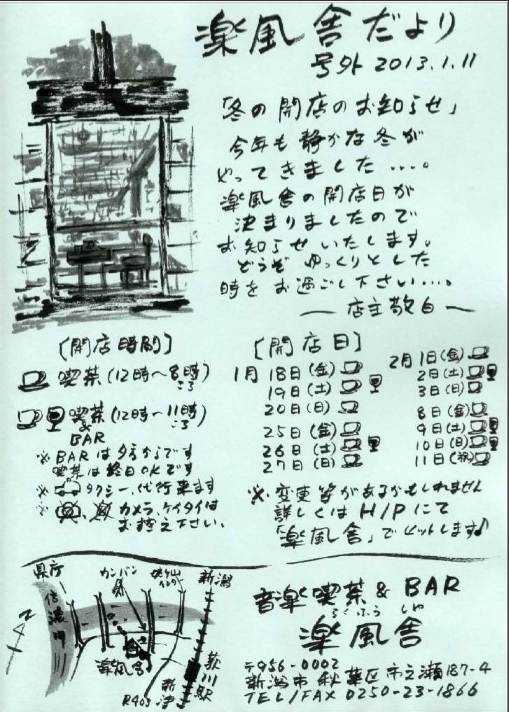 楽風舎だより
号外 2013.1.11
「冬の開店のお知らせ」
今年も静かな冬が
やってきました....。
楽風舎の開店日が
決まりましたので
お知らせいたします。
どうぞ ゆっくりとした
時をお過ごし下さい...。
店主敬白
〔開店時間〕
喫茶(12時〜8時)
ころ
喫茶(12時〜11時)
ころ
&
BAR
※BARは夕方からです
喫茶は終日OKです
※タクシー、代行来ます
※カメラ、ケイタイは
お控え下さい。
〔開店日〕
1月 18日(金)
19日(土)
20日(日)
25日(金)
26日(土)
27日(日)
2月1日(金)
2日(土)
3日(日)
8日(金)
9日(土)
10日(日)
11日(祝)
※変更等があるかもしれません
詳しくは H/Pにて
「楽風舎」でヒットします♪
県庁
信濃川
カンバン
新潟
N
楽風舎
荻川駅
R403
新津
音楽喫茶 & BAR
らくふう しゃ
楽風舎
〒956-0002
新潟市秋葉区市之瀬187-4
TEL/FAX 0250-23-1866